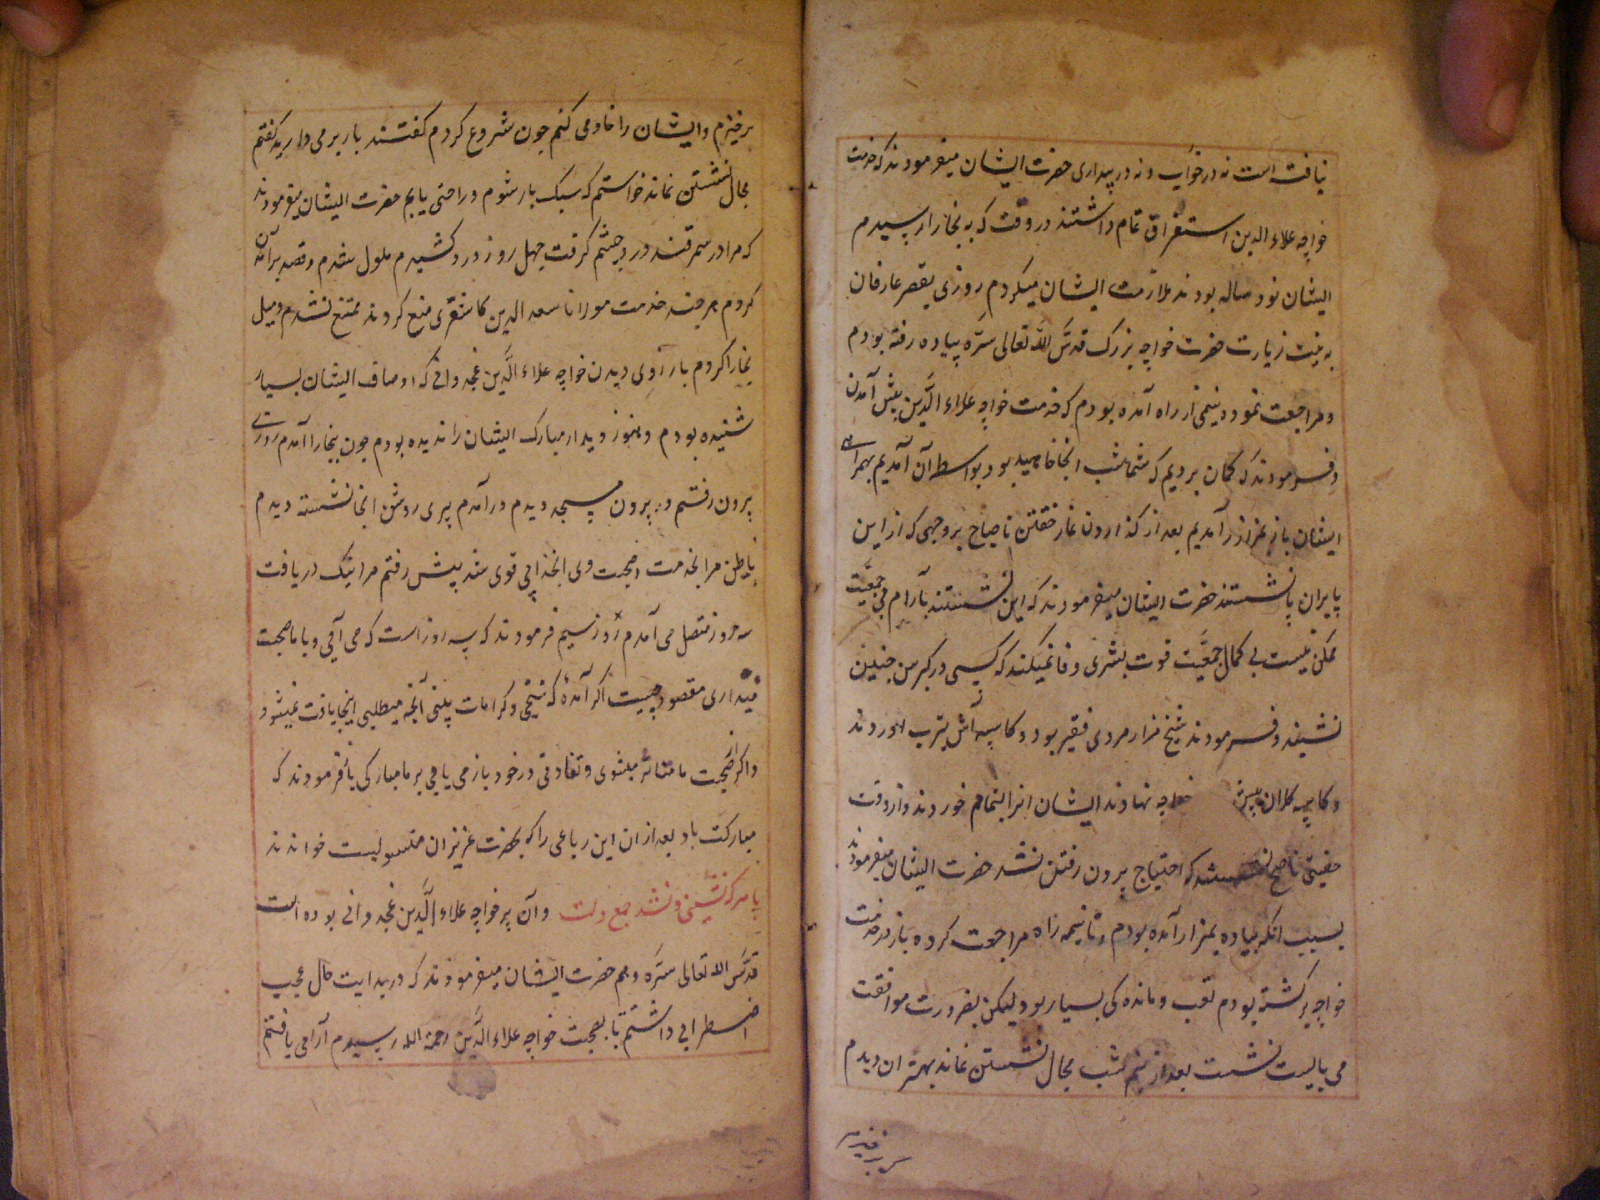 نیافته است نه در خواب و نه در بیداری حضرت ایشان میفرمودند که خدمت
خواجه علاء الدین استغراق تمام داشتند در وقت که به بخارا رسیدم
ایشان نود ساله بودند ملازمت ایشان میکردم روزی بقصر عارفان
به نیت زیارت حضرت خواجه بزرک قدس الله تعالی سره پیاده رفته بودم
و مراجعت نموده نیمی از راه آمده بودم که خدمت خواجه علاء الدین پیش آمدن
و فرمودند که کمان بردیم که شما شب انجا خواهید بود بواسطه آن آمدیم بهمراهی
ایشان باز بمزار در آمدیم بعد از کذاردن نماز خفتن تا صباح بر وجهی که از این
پا بران پا نشستند حضرت ایشان میفرمودند که این نشستن بآرام بی جمعیت
ممکن نیست بی کمال جمعیت قوت بشری وفا نمیکند که کسی در کبر سن چنین
نشیند و فرمودند شیخ مزار مردی فقیر بود دو کاسه آش بترب آوردند
و کاسه کلان پیش خواجه نهادند ایشان انرا بتمام خوردند و از وقت
خفتن تا صبح که احتیاج بیرون رفتن نشد حضرت ایشان میفرمودند
بسبب انکه پیاده بمزار آمده بودم و تا نیمه راه مراجعت کرده باز در خدمت
خواجه برکشته بودم تعب و ماندکی بسیار بود لیکن بضرورت موافقت
می بایست نشست بعد از نیم شب مجال نشستن نماند بهتر ان دیدم
که بر خیزم
بر خیزم و ایشان را خادمی کنم چون شروع کردم کفتند بار بر می دارید کفتم
مجال نشستن نماند خواستم که سبک بار شوم و راحتی یابم حضرت ایشان میفرمودند
که مرا در سمرقند درد چشم کرفت چهل روز درد کشیدم ملول شدم و قصد بر آمدن
کردم هر چند خدمت مولانا سعد الدین کاشغری منع کردند ممتنع نشدم و میل
بخارا کردم بارزوی دیدن خواجه علاء الدین غجدوانی که اوصاف ایشان بسیار
شنیده بودم و هنوز دیدار مبارک ایشان را ندیده بودم چون ببخارا آمدم روزی
بیرون رفتم و در بیرون مسجد دیدم در آمدم پیری روشن انجا نشسته دیدم
باطن مرا بخدمت و صحبت وی انجذابی قوی شد پیش رفتم مرا نیک دریافت
سه روز متصل می آمدم روز سیم فرمودند که سه روز است که می آیی و با ما صحبت
میداری مقصود چیست اکر آمدهٔ که شیخی و کرامات بینی آنچه میطلبی اینجا یافت نمیشود
و اکر از صحبت ما متاثر میشوی و تفاوتی در خود باز می یابی بر ما مبارکی یا فرمودند که
مبارکت باد بعد از ان این رباعی را که بحضرت عزیزان منسوبست خواندند
با هر که نشینی و نشد جمع دلت و آن پیر خواجه علاء الدین غجدوانی بوده است
قدس الله تعالی سره و هم حضرت ایشان میفرمودند که در بدایت حال عجیب
اضطرابی داشتم تا بصحبت خواجه علاء الدین رحمة الله رسیدم آرامی یافتم